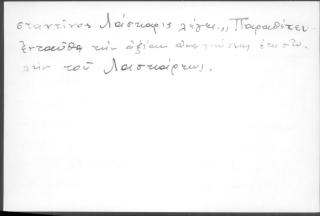 σταντῖνος Λάσκαρις λέγει „ Παραθέτει
ἐνταῦθα τὴν ἀξίαν ἀναγνώσεως ἐπιστο-
λὴν τοῦ Λασκάρεως.